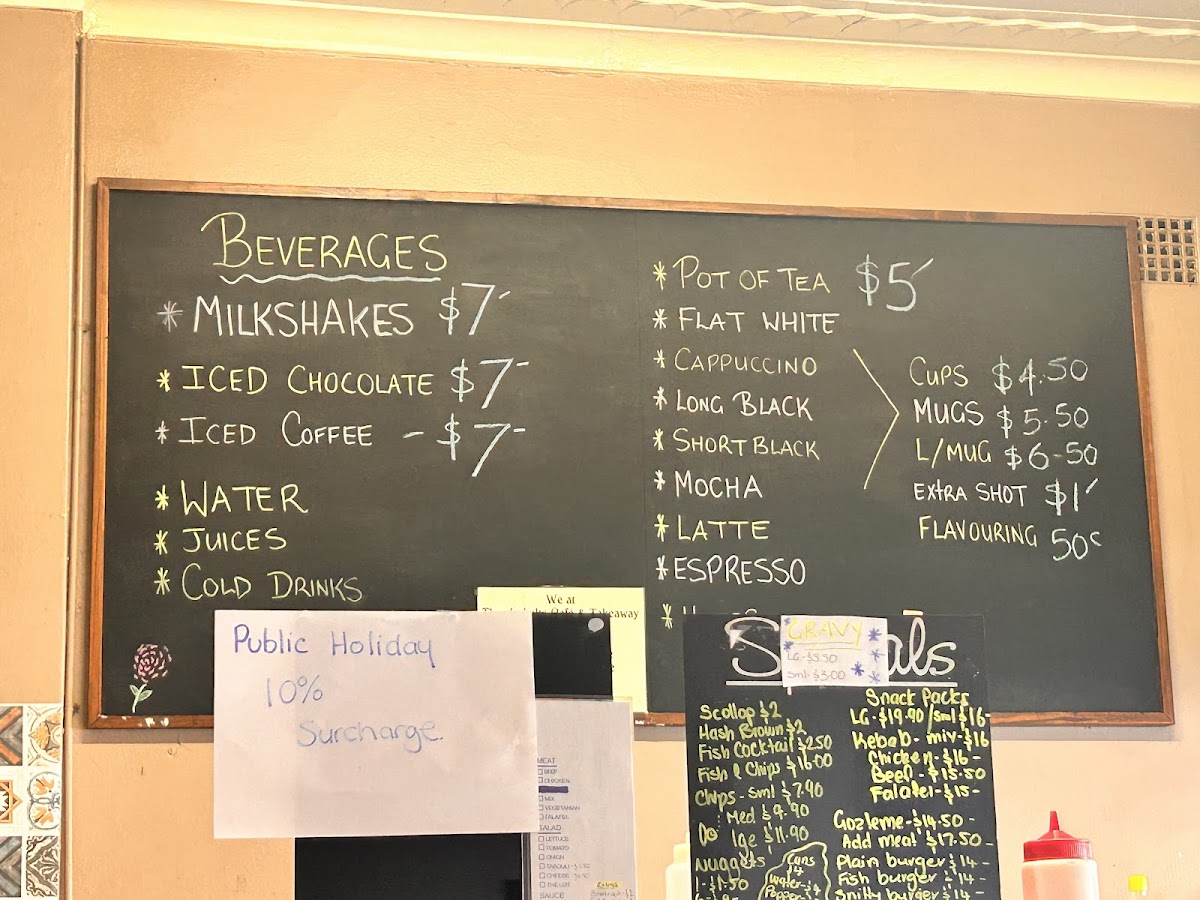 BEVERAGES
* MILKSHAKES $7
* ICED CHOCOLATE $7-
* ICED COFFEE - $7-
* WATER
* JUICES
* COLD DRINKS
* POT OF TEA $5
* FLAT WHITE
* CAPPUCCINO
* LONG BLACK
* SHORT BLACK
* MOCHA
* LATTE
* ESPRESSO
CUPS $4.50
MUGS $5.50
L/MUG $6-50
EXTRA SHOT $1
FLAVOURING 50c
We at
& Takeaway
Public Holiday
10%
Surcharge.
MEAT
BEEF
CHICKEN
MIX
VEGETARIAN
FALAFEL
SALAD
LETTUCE
TOMATO
ONION
SAUCE
GRAVY
LG-$5.50
Sml-$3.00
Scollop $2
Hash Brown $2
Fish Cocktail $2.50
Fish & Chips $16.00
Chips - Sml $7.90
Med $9.90
lge $11.90
Nuggets
Cans
Water-$4
Snack Packs
LG-$19.90/sml $16-
Kebab-mix-$16
Chicken-$16-
Beef-$15.50
Falafel-$15-
Gozleme-$14.50-
Add meat $17.50-
Plain burger $14-
Fish burger $14-
burger $14-